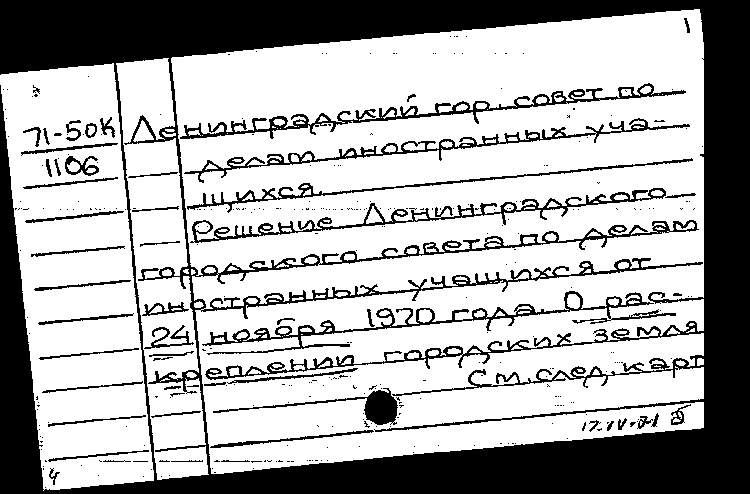 1
71-50К Ленинградский гор. совет по
1106 делам иностранных уча-
щихся.
Решение Ленинградского
городского совета по делам
иностранных учащихся от
24 ноября 1970 года. О рас-
креплении городских земля
См. след. карт
17.IV-71
4